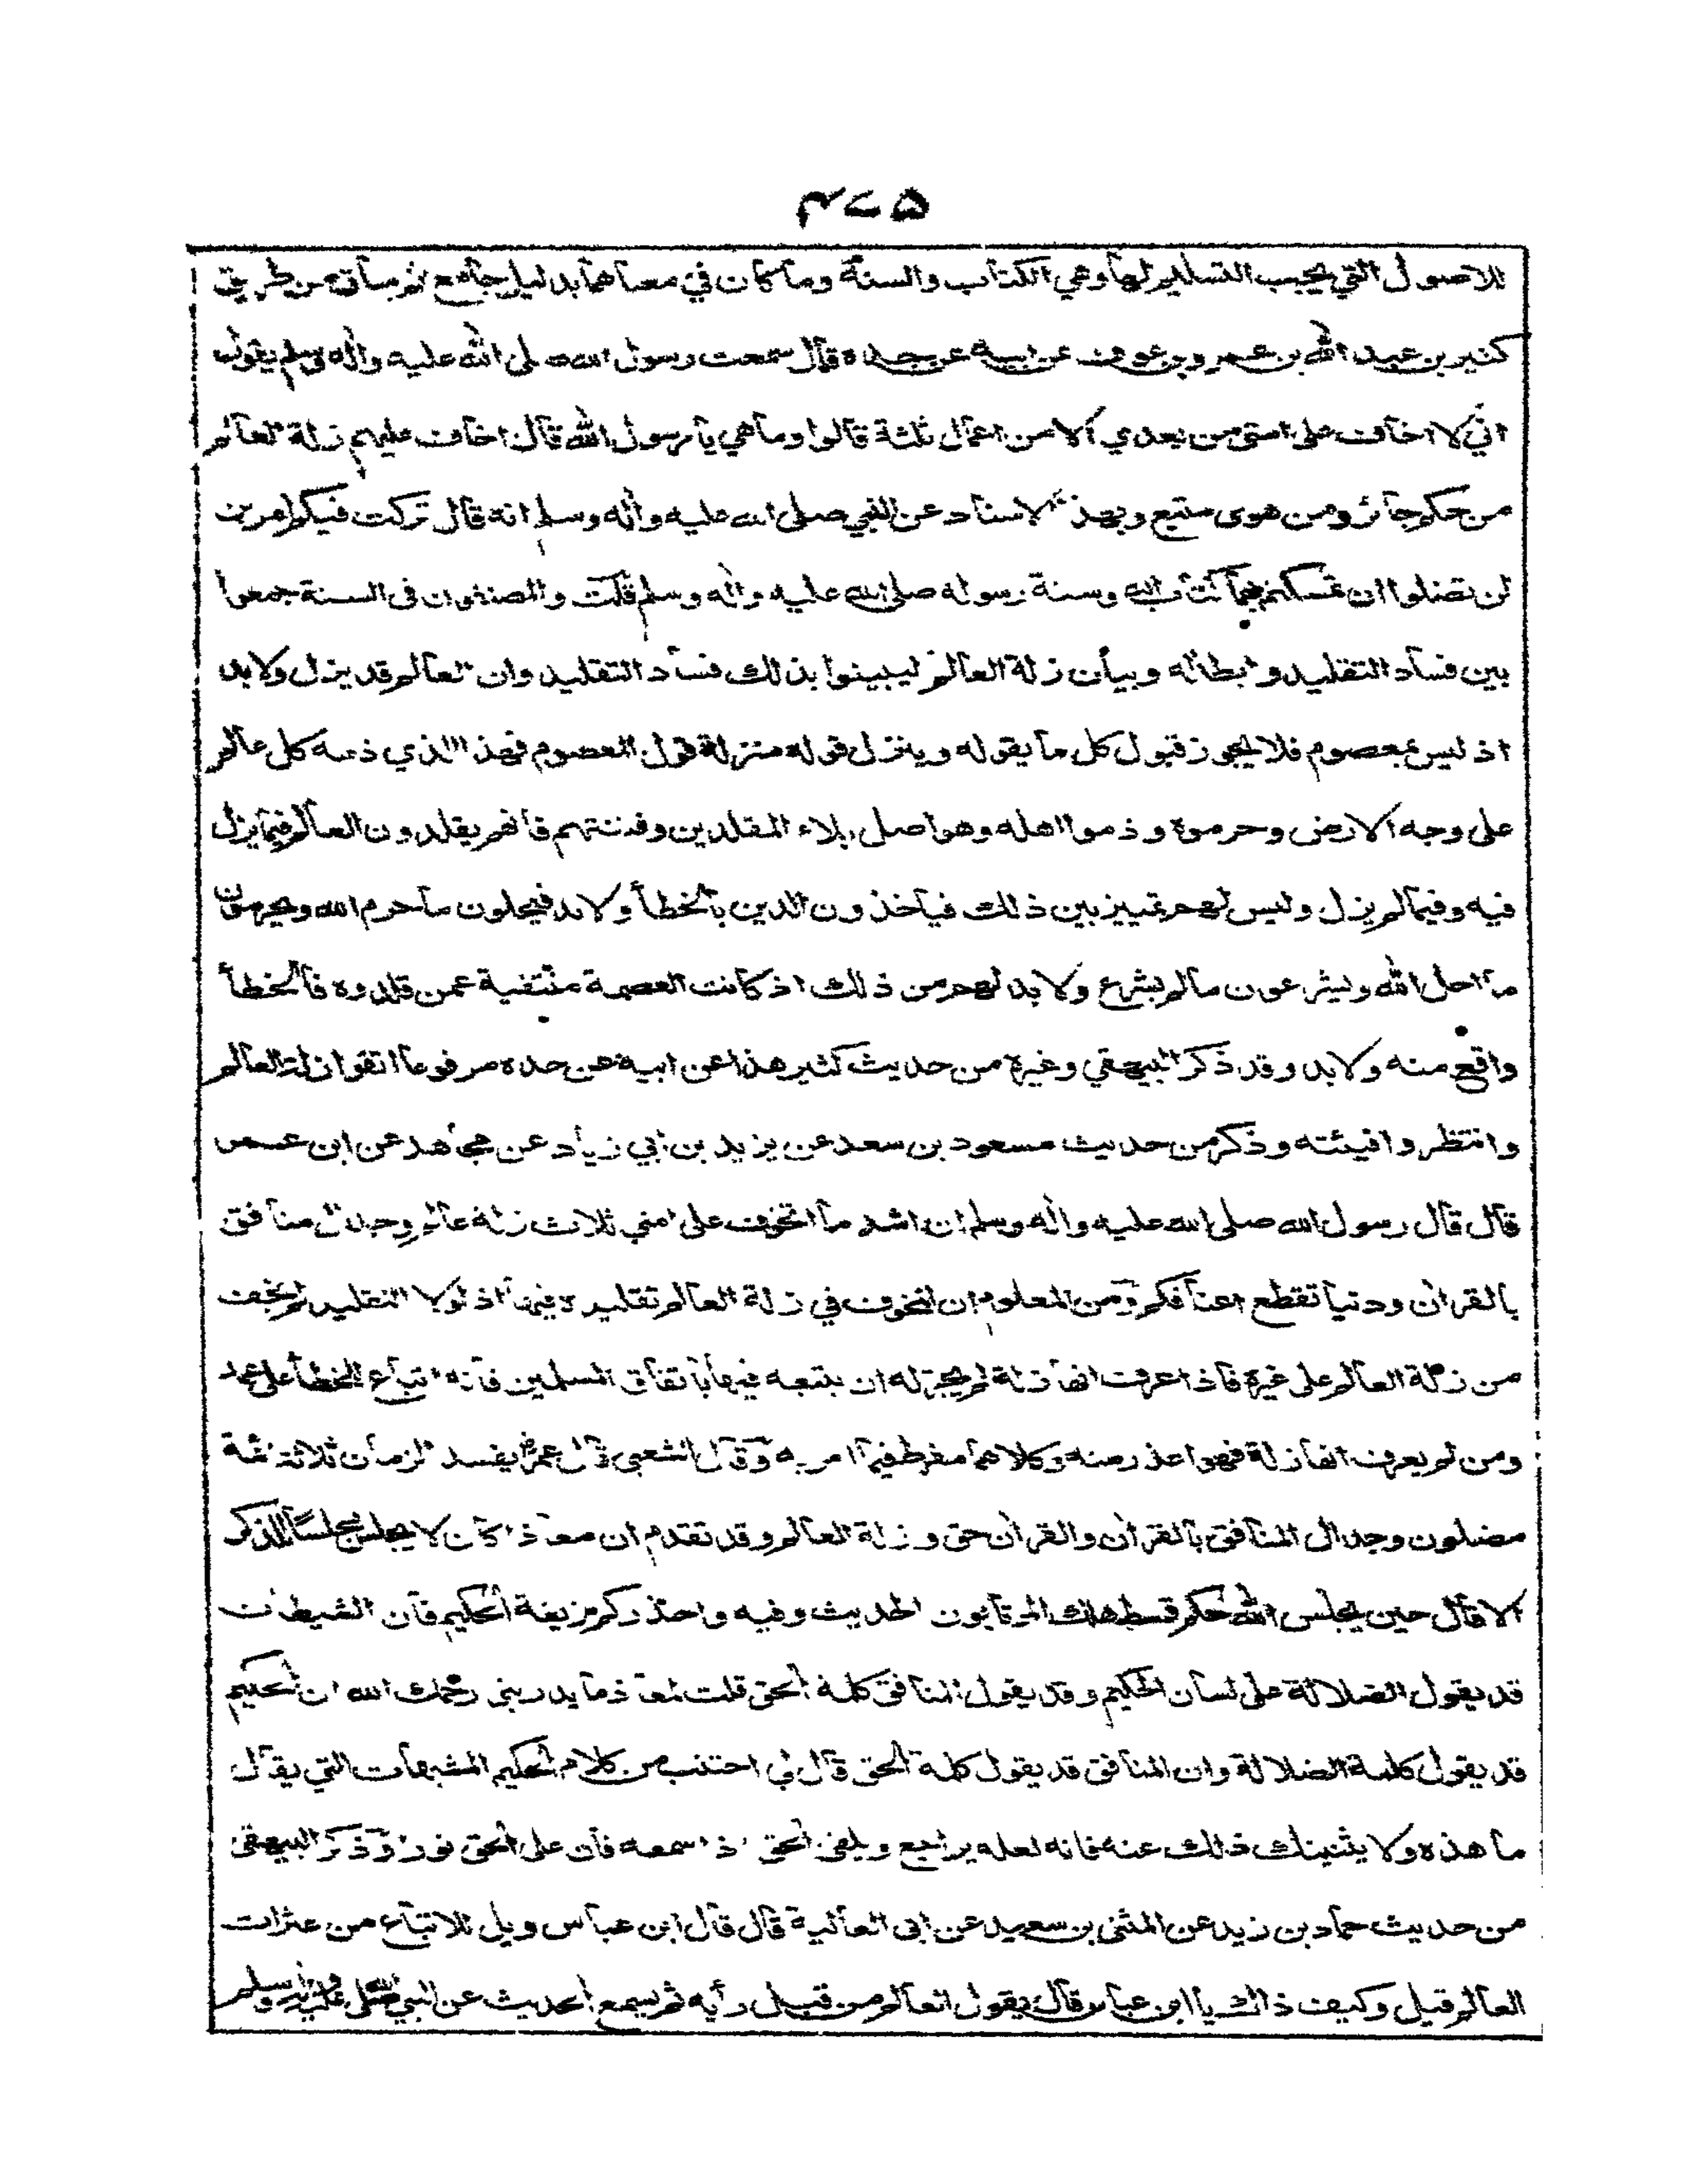 ٤٧٥
للاصول التي يجب التسليم لها وهي الكتاب والسنة وما كان في معناهما بدليل جامع ثم ساق من طريق
كثير بن عبد الله بن عمرو بن عوف عن ابيه عن جده قال سمعت رسول الله صلى الله عليه وآله وسلم يقول
اني لا اخاف على امتي من بعدي الا من اعمال ثلثة قالوا وما هي يا رسول الله قال اخاف عليهم زلة العالم
من حكم جائر ومن هوى متبع وبهذا الاسناد عن النبي صلى الله عليه وآله وسلم انه قال تركت فيكم امرين
لن تضلوا ان تمسكتم بهما كتاب الله وسنة رسوله صلى الله عليه وآله وسلم قلت والمصنفون في السنة جمعوا
بين فساد التقليد وابطاله وبيان زلة العالم ليبينوا بذلك فساد التقليد وان العالم قد يزل ولا بد
اذ ليس بمعصوم فلا يجوز قبول كل ما يقوله وينزل قوله منزلة قول المعصوم فهذا الذي ذمه كل عالم
على وجه الارض وحرموه وذموا اهله وهو اصل بلاء المقلدين وفتنتهم فانهم يقلدون العالم فيما يزل
فيه وفيما لم يزل وليس لهم تمييز بين ذلك فيأخذون الدين بالخطأ ولا بد فيحلون ما حرم الله ويحرمون
ما احل الله ويشرعون ما لم يشرع ولا بد لهم من ذلك اذ كانت العصمة منتفية عمن قلدوه فالخطأ
واقع منه ولا بد وقد ذكر البيهقي وغيره من حديث كثير هذا عن ابيه عن جده مرفوعا اتقوا زلة العالم
وانتظروا فيئته وذكر من حديث مسعود بن سعد عن يزيد بن ابي زياد عن مجاهد عن ابن عمر
قال قال رسول الله صلى الله عليه وآله وسلم ان اشد ما اتخوف على امتي ثلاث زلة عالم وجدال منافق
بالقرآن ودنيا تقطع اعناقكم ومن المعلوم ان المخوف في زلة العالم تقليده فيها اذ لولا التقليد لم يخف
من زلة العالم على غيره فاذا عرف انها زلة لم يجز له ان يتبعه فيها باتفاق المسلمين فانه اتباع للخطأ على عمد
ومن لم يعرف انها زلة فهو اعذر منه وكلاهما مفرط فيما امر به وقال الشعبي قال عمر يفسد الزمان ثلاثة ائمة
مضلون وجدال المنافق بالقرآن والقرآن حق وزلة العالم وقد تقدم ان معاذا كان لا يجلس مجلسا للذكر
الا قال حين يجلس الله حكم قسط هلك المرتابون الحديث وفيه واحذركم زيغة الحكيم فان الشيطان
قد يقول الضلالة على لسان الحكيم وقد يقول المنافق كلمة الحق قلت لمعاذ ما يدريني رحمك الله ان الحكيم
قد يقول كلمة الضلالة وان المنافق قد يقول كلمة الحق قال لي اجتنب من كلام الحكيم المشبهات التي يقال
ما هذه ولا يثنينك ذلك عنه فانه لعله يراجع ويلقى الحق اذا سمعه فان على الحق نورا وذكر البيهقي
من حديث حماد بن زيد عن المثنى بن سعيد عن ابي العالية قال قال ابن عباس ويل للاتباع من عثرات
العالم قيل وكيف ذاك يا ابن عباس قال يقول العالم من قبل رأيه ثم يسمع الحديث عن النبي صلى الله عليه وآله وسلم